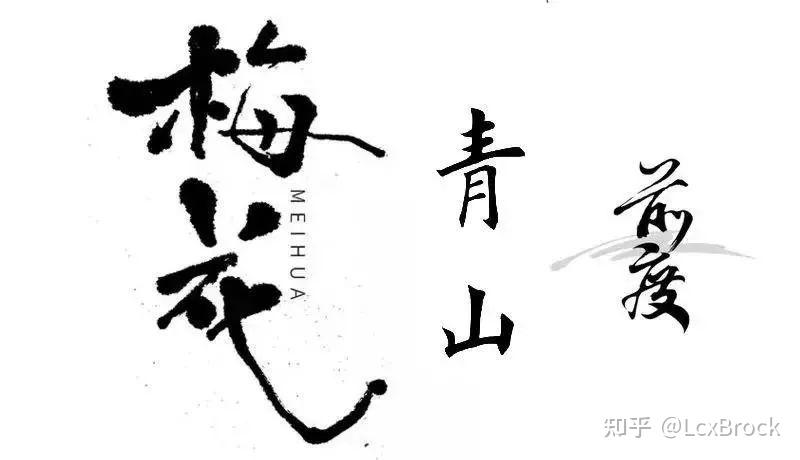 梅花
MEIHUA
青山
前度
知乎 @LcxBrock